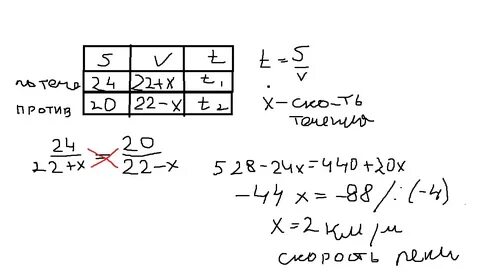 S V t
по тече 24 22+x t₁
против 20 22-x t₂
t = S/v
x - ско-ть
течения
24/22+x = 20/22-x
528-24x=440+20x
-44 x = -88 /:(-4)
x = 2 км/ч
скорость реки